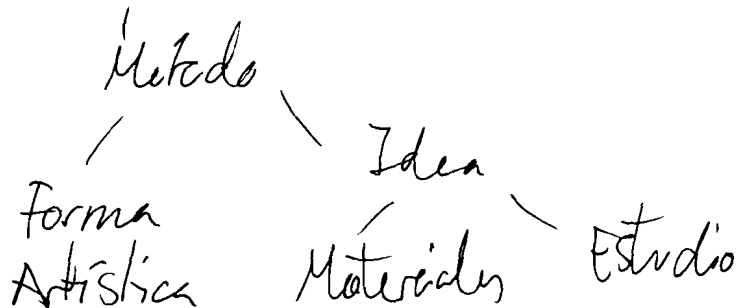 Método
Idea
Forma
Artística
Materiales
Estudio